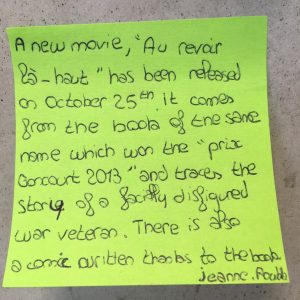 A new movie, "Au revoir
là-haut" has been released
on October 25th. it comes
from the book of the same
name which won the "prix
Goncourt 2013" and traces the
story of a facially disfigured
war veteran. There is also
a comic written thanks to the book.
jeanne.